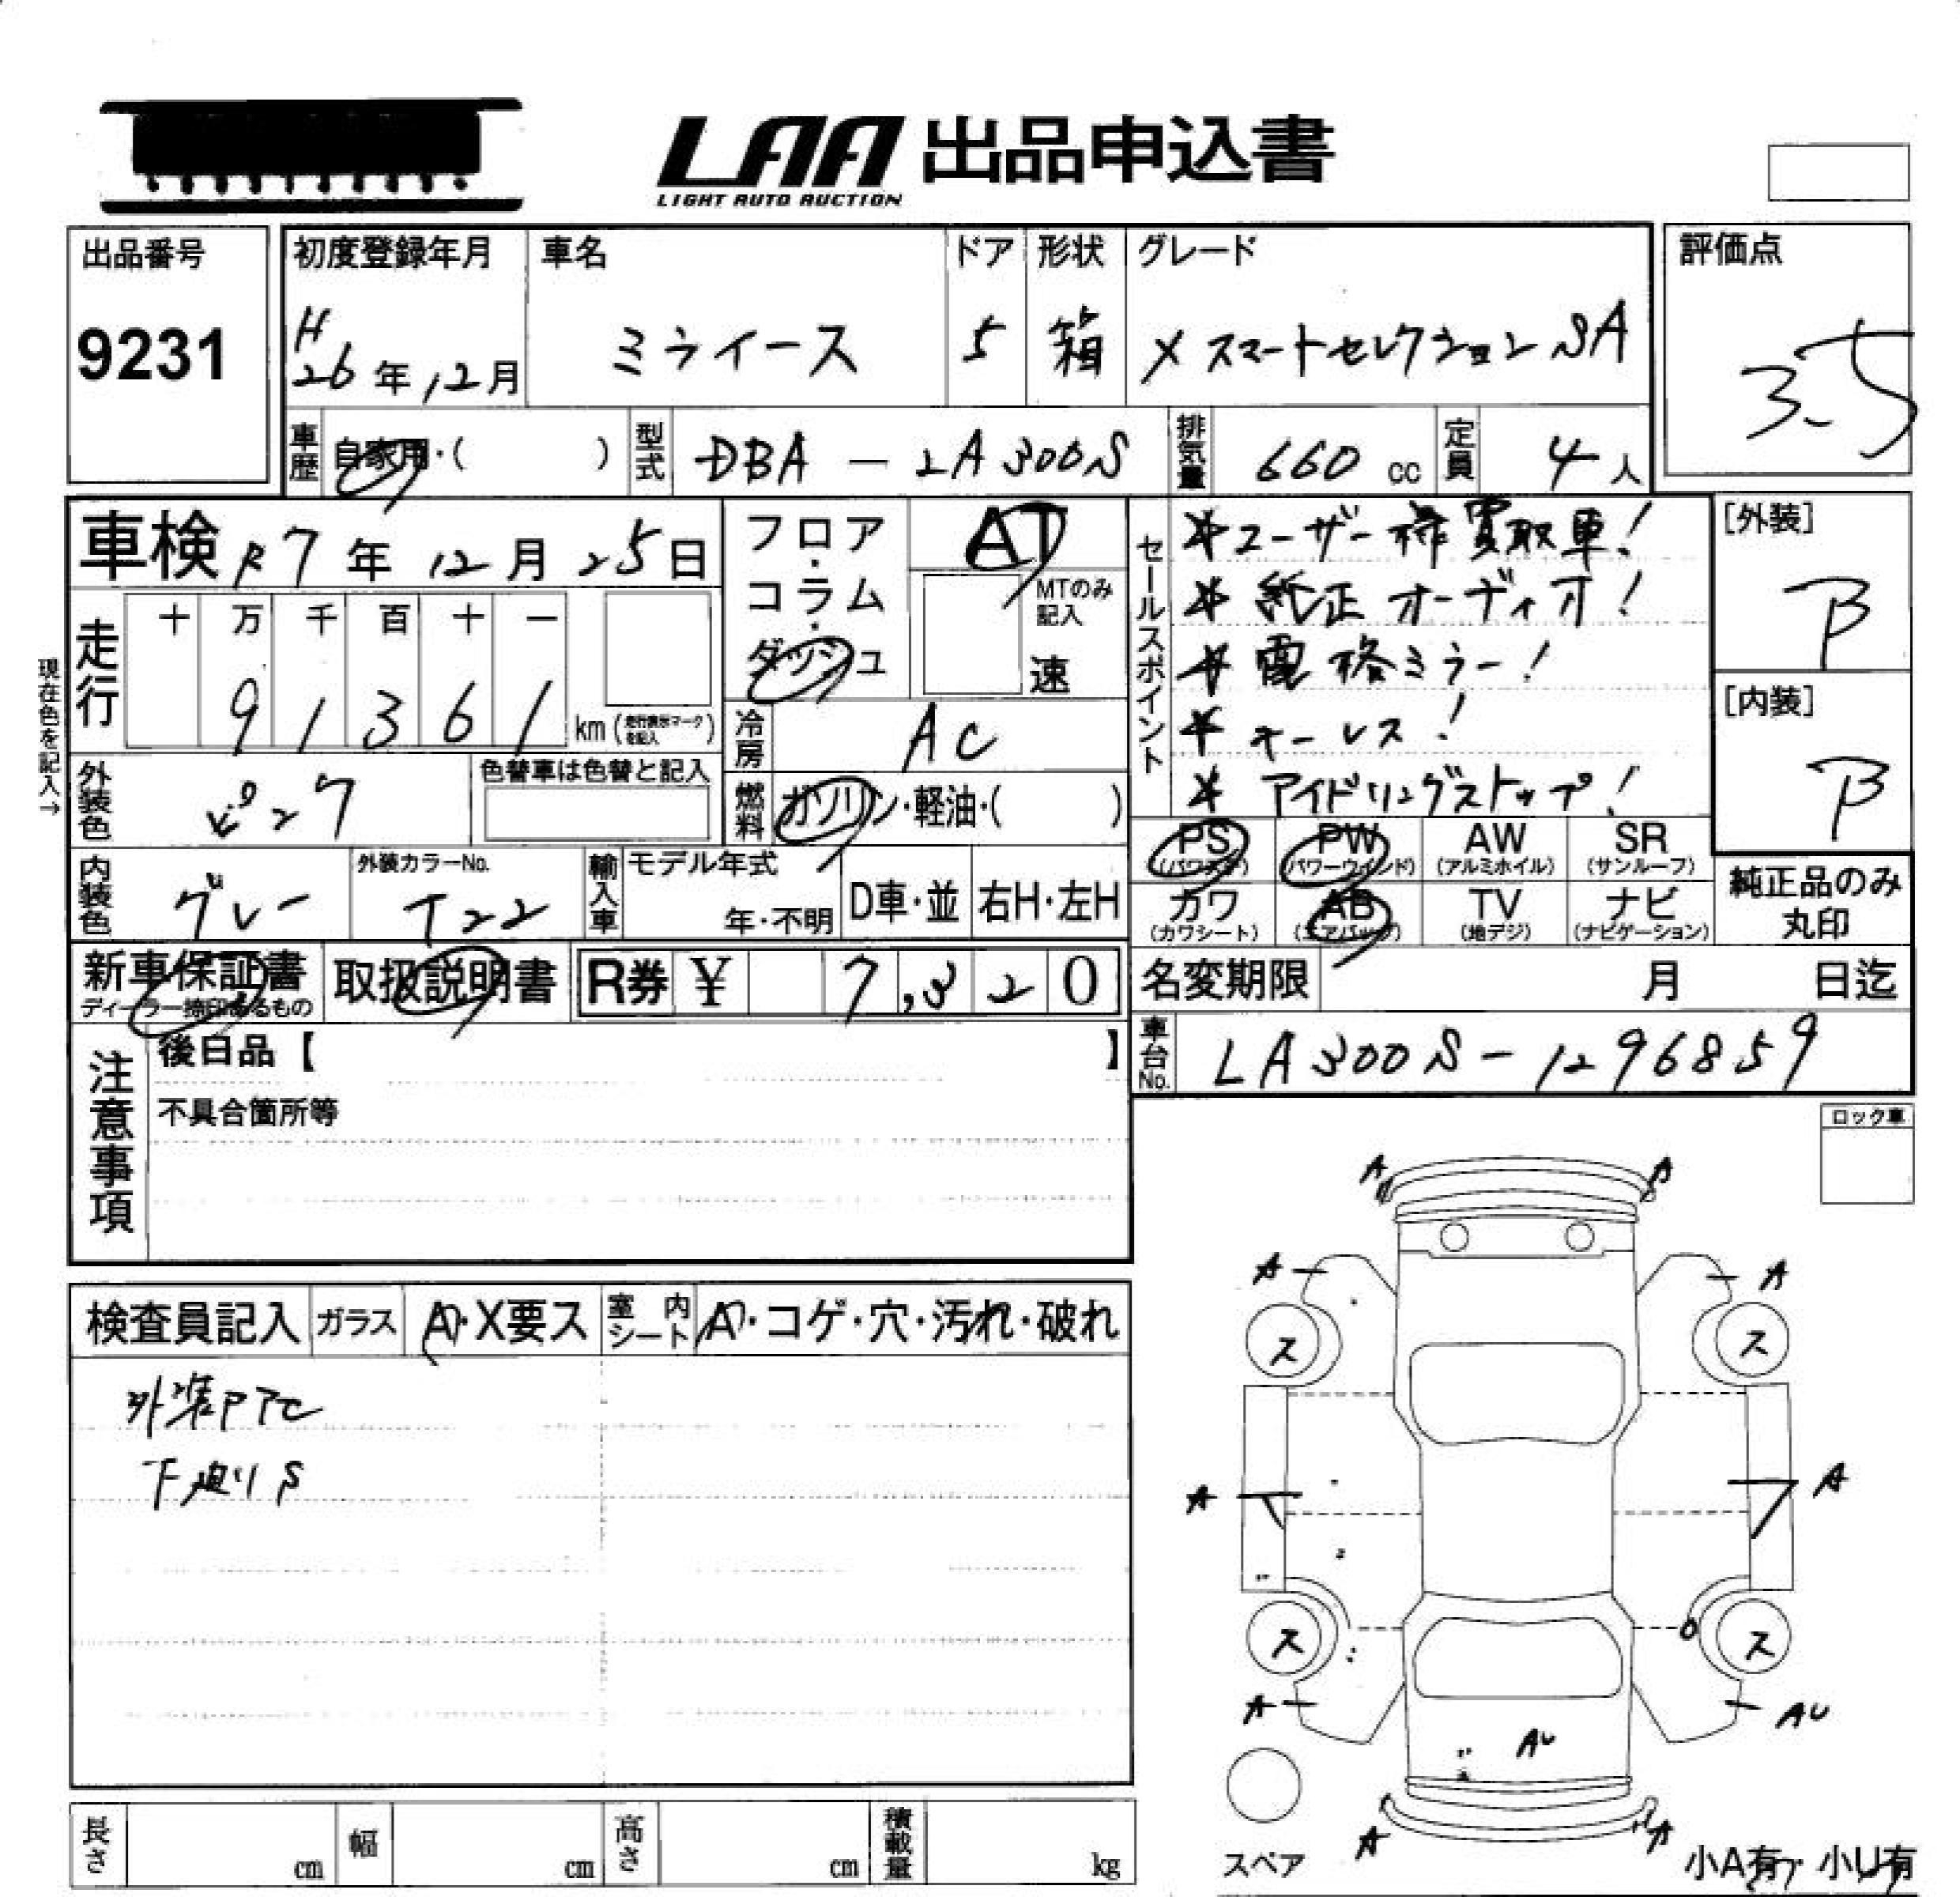 LAA 出品申込書
LIGHT AUTO AUCTION
出品番号
9231
初度登録年月
H
26年12月
車名
ミライース
ドア
5
形状
箱
グレード
X スマートセレクションSA
評価点
3.5
車歴
自家用・( )
型式
DBA - LA300S
排気量
660 cc
定員
4人
車検 R7年12月25日
現在色を記入→
走行
十 万 千 百 十 一
9 1 3 6 1
km (走行表示マークを記入)
外装色
ピンク
色替車は色替と記入
内装色
グレー
外装カラーNo.
T22
フロア・コラム・ダッシュ
AT
MTのみ記入
速
冷房
AC
燃料
ガソリン・軽油・( )
輸入車
モデル年式
年・不明
D車・並
右H・左H
セールスポイント
*ユーザー様買取車!
*純正オーディオ!
*電格ミラー!
*キーレス!
*アイドリングストップ!
[外装]
B
[内装]
B
PS
(パワステ)
PW
(パワーウインド)
AW
(アルミホイル)
SR
(サンルーフ)
カワ
(カワシート)
AB
(エアバッグ)
TV
(地デジ)
ナビ
(ナビゲーション)
純正品のみ
丸印
新車保証書
ディーラー捺印あるもの
取扱説明書
R券 ¥ 7,320
名変期限 月 日迄
車台No.
LA300S-1296859
注意事項
後日品【 】
不具合箇所等
ロック車
検査員記入
ガラス
A・X要ス
室内シート
A・コゲ・穴・汚れ・破れ
外装PTC
下廻りS
A A
A A
ス ス
A A
ス ス
A AU
AU
A A
スペア
小A有・小U有
長さ cm
幅 cm
高さ cm
積載量 kg